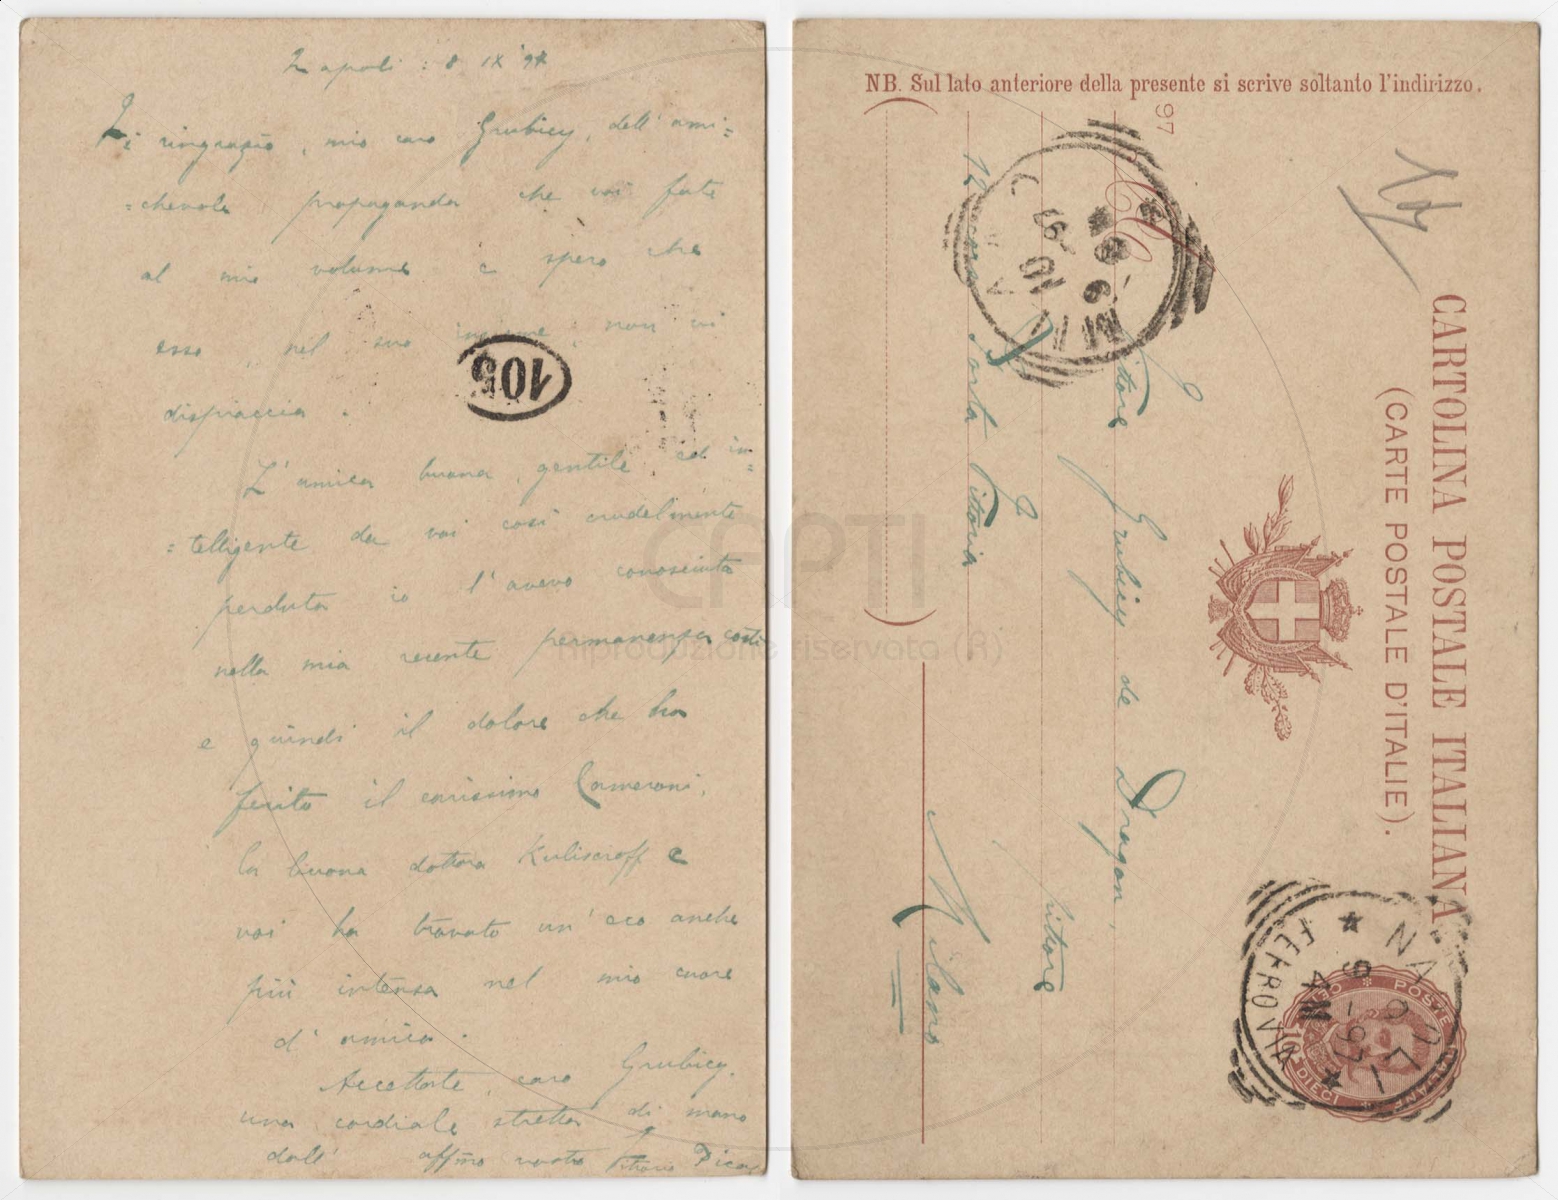 Napoli: 8 IX '97
Vi ringrazio, mio caro Grubicy, dell'ami=
=chevole propaganda che voi fate
al mio volume e spero che
esso, nel suo insieme, non vi
dispiaccia.
L'amica buona, gentile ed in=
=telligente da voi così crudelmente
perduta io l'avevo conosciuta
nella mia recente permanenza costì
e quindi il dolore che ha
ferito il carissimo Cameroni,
la buona dottora Kuliscioff e
voi ha trovato un'eco anche
più intensa nel mio cuore
d'amico.
Accettate, caro Grubicy,
una cordiale stretta di mano
dall' affmo vostro Vittorio Pica
105
CAPTI
riproduzione riservata (R)
NB. Sul lato anteriore della presente si scrive soltanto l'indirizzo.
97
CARTOLINA POSTALE ITALIANA
(CARTE POSTALE D'ITALIE).
Vittore Grubicy de Dragon,
pittore
Porta Vittoria
Milano
MILANO
9-97
10
NAPOLI
FERROVIA
9-97
4M
POSTE ITALIANE
DIECI